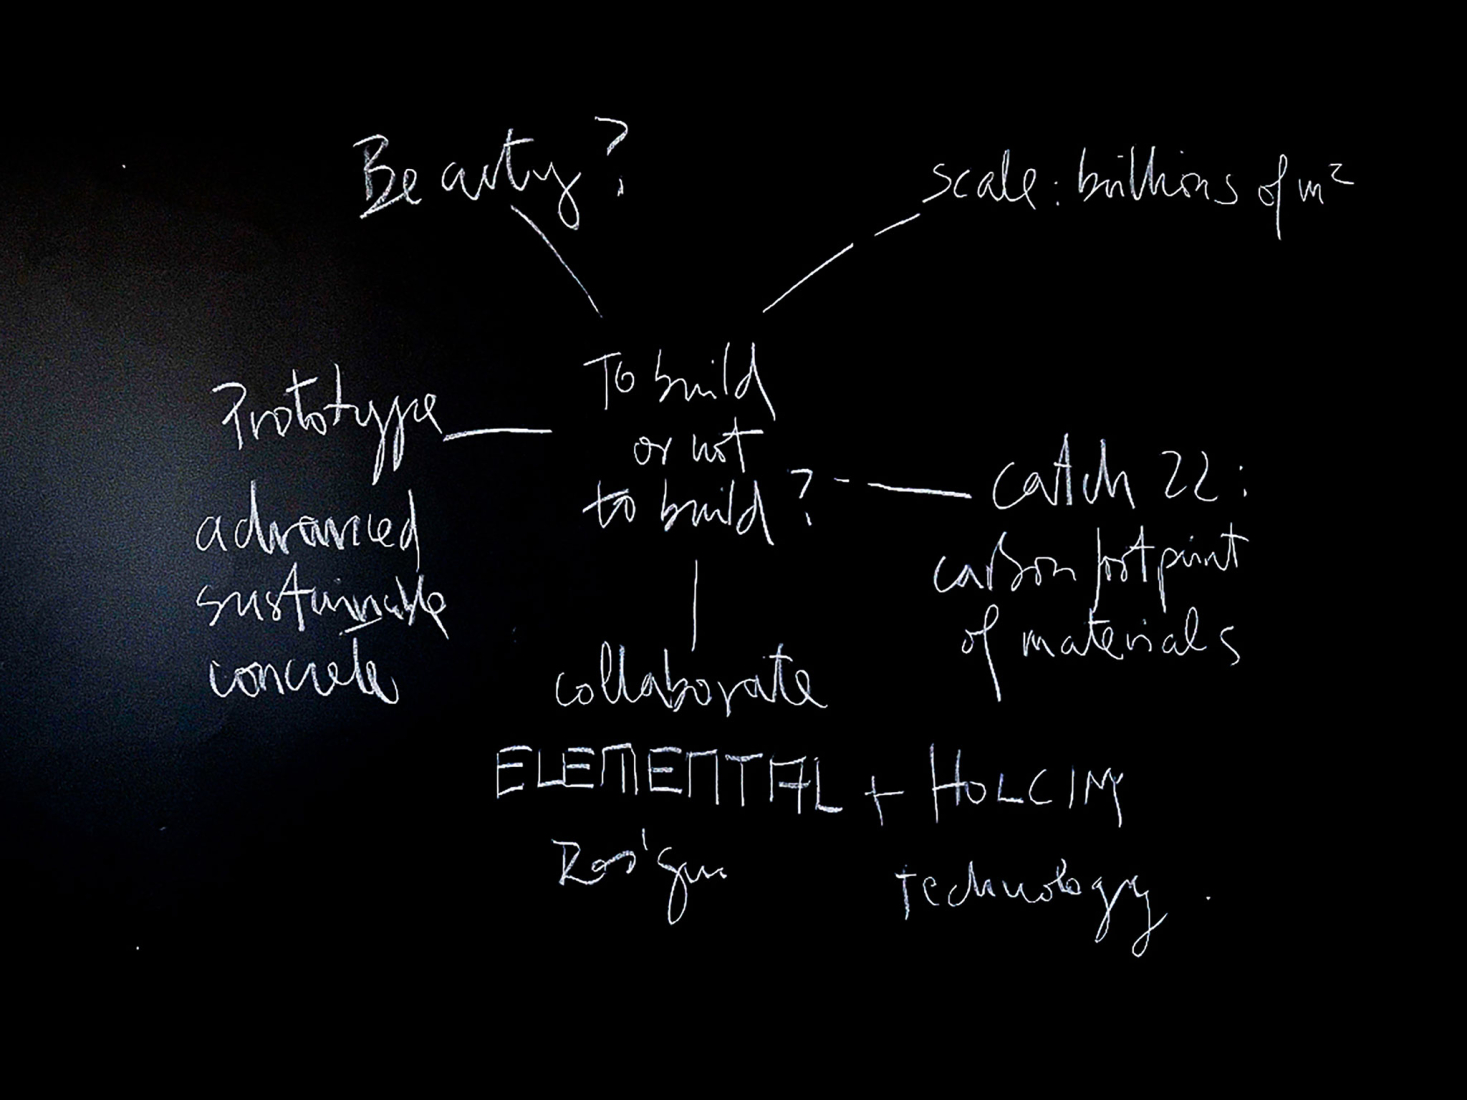 Beauty?
scale: billions of m²
To build
or not
to build?
Prototype
advanced
sustainable
concrete
catch 22:
carbon footprint
of materials
collaborate
ELEMENTAL + HOLCIM
Design
technology.